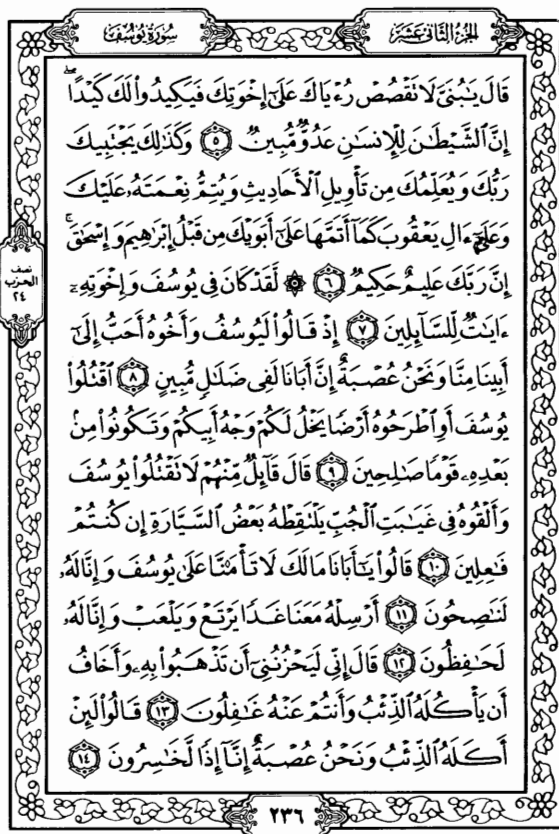 سُورَةُ يُوسُفَ
الجُزْءُ الثَّانِي عَشَرَ
قَالَ يَٰبُنَيَّ لَا تَقْصُصْ رُءْيَاكَ عَلَىٰٓ إِخْوَتِكَ فَيَكِيدُوا۟ لَكَ كَيْدًا ۖ
إِنَّ ٱلشَّيْطَٰنَ لِلْإِنسَٰنِ عَدُوٌّ مُّبِينٌ ٥ وَكَذَٰلِكَ يَجْتَبِيكَ
رَبُّكَ وَيُعَلِّمُكَ مِن تَأْوِيلِ ٱلْأَحَادِيثِ وَيُتِمُّ نِعْمَتَهُۥ عَلَيْكَ
وَعَلَىٰٓ ءَالِ يَعْقُوبَ كَمَآ أَتَمَّهَا عَلَىٰٓ أَبَوَيْكَ مِن قَبْلُ إِبْرَٰهِيمَ وَإِسْحَٰقَ ۚ
إِنَّ رَبَّكَ عَلِيمٌ حَكِيمٌ ٦ ۞ لَّقَدْ كَانَ فِى يُوسُفَ وَإِخْوَتِهِۦٓ
ءَايَٰتٌ لِّلسَّآئِلِينَ ٧ إِذْ قَالُوا۟ لَيُوسُفُ وَأَخُوهُ أَحَبُّ إِلَىٰٓ
أَبِينَا مِنَّا وَنَحْنُ عُصْبَةٌ إِنَّ أَبَانَا لَفِى ضَلَٰلٍ مُّبِينٍ ٨ ٱقْتُلُوا۟
يُوسُفَ أَوِ ٱطْرَحُوهُ أَرْضًا يَخْلُ لَكُمْ وَجْهُ أَبِيكُمْ وَتَكُونُوا۟ مِنۢ
بَعْدِهِۦ قَوْمًا صَٰلِحِينَ ٩ قَالَ قَآئِلٌ مِّنْهُمْ لَا تَقْتُلُوا۟ يُوسُفَ
وَأَلْقُوهُ فِى غَيَٰبَتِ ٱلْجُبِّ يَلْتَقِطْهُ بَعْضُ ٱلسَّيَّارَةِ إِن كُنتُمْ
فَٰعِلِينَ ١٠ قَالُوا۟ يَٰٓأَبَانَا مَا لَكَ لَا تَأْمَ۫نَّا عَلَىٰ يُوسُفَ وَإِنَّا لَهُۥ
لَنَٰصِحُونَ ١١ أَرْسِلْهُ مَعَنَا غَدًا يَرْتَعْ وَيَلْعَبْ وَإِنَّا لَهُۥ
لَحَٰفِظُونَ ١٢ قَالَ إِنِّى لَيَحْزُنُنِىٓ أَن تَذْهَبُوا۟ بِهِۦ وَأَخَافُ
أَن يَأْكُلَهُ ٱلذِّئْبُ وَأَنتُمْ عَنْهُ غَٰفِلُونَ ١٣ قَالُوا۟ لَئِنْ
أَكَلَهُ ٱلذِّئْبُ وَنَحْنُ عُصْبَةٌ إِنَّآ إِذًا لَّخَٰسِرُونَ ١٤
نصف
الحزب
٢٤
٢٣٦